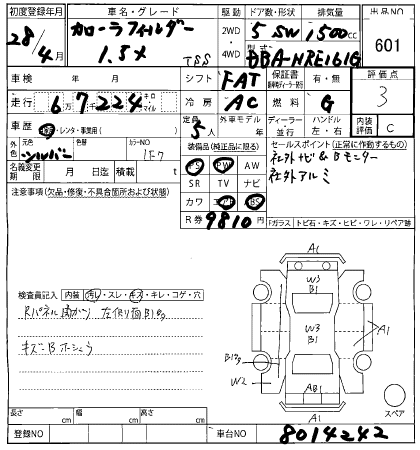 初度登録年月 車名・グレード 駆動 ドア数・形状 排気量 出品NO
28/4月 カローラフィルダー 2WD・4WD 5 SW 1500cc 601
1.5X TSS 型式 DBA-NRE161G
車検 年 月 シフト FAT 保証書 有・無 評価点
走行 6万7224キロ マイル 冷房 AC 燃料 G 3
車歴 自家・レンタ・事業用( ) 定員 5人 外車モデル 年 ディーラー 並行 ハンドル 左・右 内装評価 C
外色 元色 シルバー 色替 カラーNO 1F7
装備品(純正品に限る) セールスポイント(正常に作動するもの)
名義変更期限 月 日迄 積載 t
PS PW AW 社外ナビ&Bモニター
SR TV ナビ 社外アルミ
注意事項(欠品・修復・不具合箇所および状態)
カワ エアB ABS
R券 9810円 「ガラス トビ石・キズ・ヒビ・ワレ・リペア跡
A1
W3
B1
検査員記入 内装 汚れ・スレ・キズ・キレ・コゲ・穴
W3
B1
A1
キズ・Bホシュウ
W2
AB1
A1
スペア
長さ cm 幅 cm 高さ cm
登録NO 車台NO 8014242